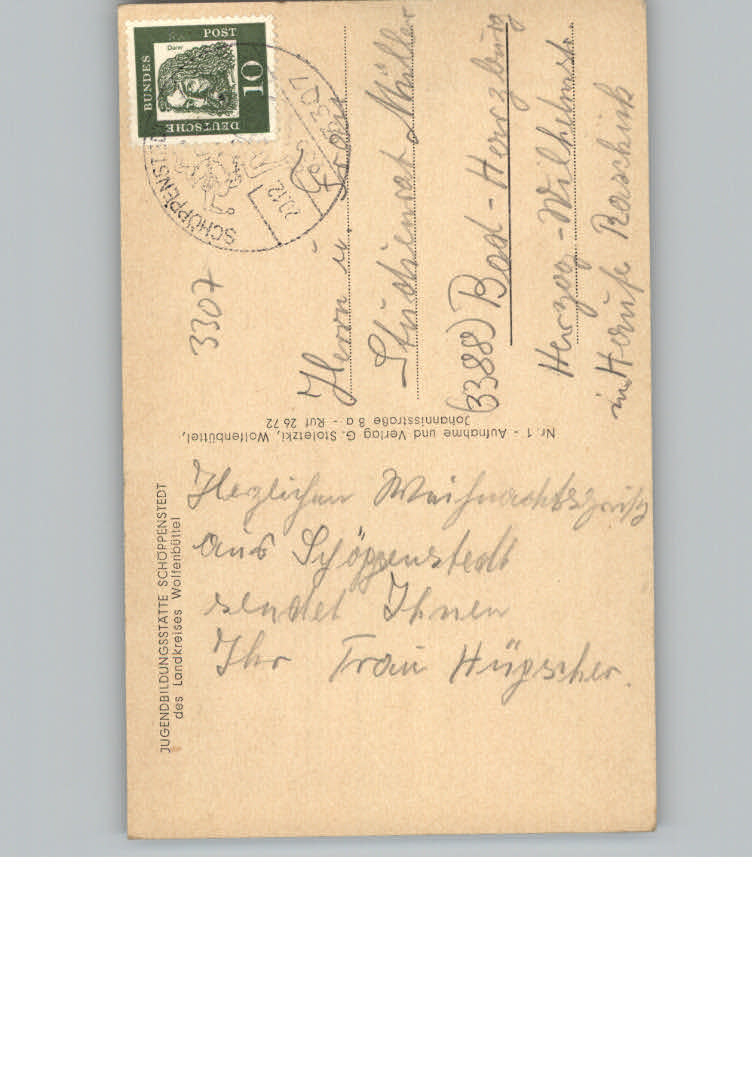 JUGENDBILDUNGSSTÄTTE SCHÖPPENSTEDT
des Landkreises Wolfenbüttel
Herzlichen Weihnachtsgruß
aus Schöppenstedt
sendet Ihnen
Ihr
Nr. 1 - Aufnahme und Verlag G. Stoletzki, Wolfenbüttel,
Johannisstraße 8 a - Ruf 26 72
DEUTSCHE
BUNDES
POST
Dürer
10
SCHÖPPENST
20.12.
3307
3307
Herrn u. Frau
Studienrat Müller
(3388) Bad-Harzburg
Herzog-Wilhelmstr.
im Hause Raschick